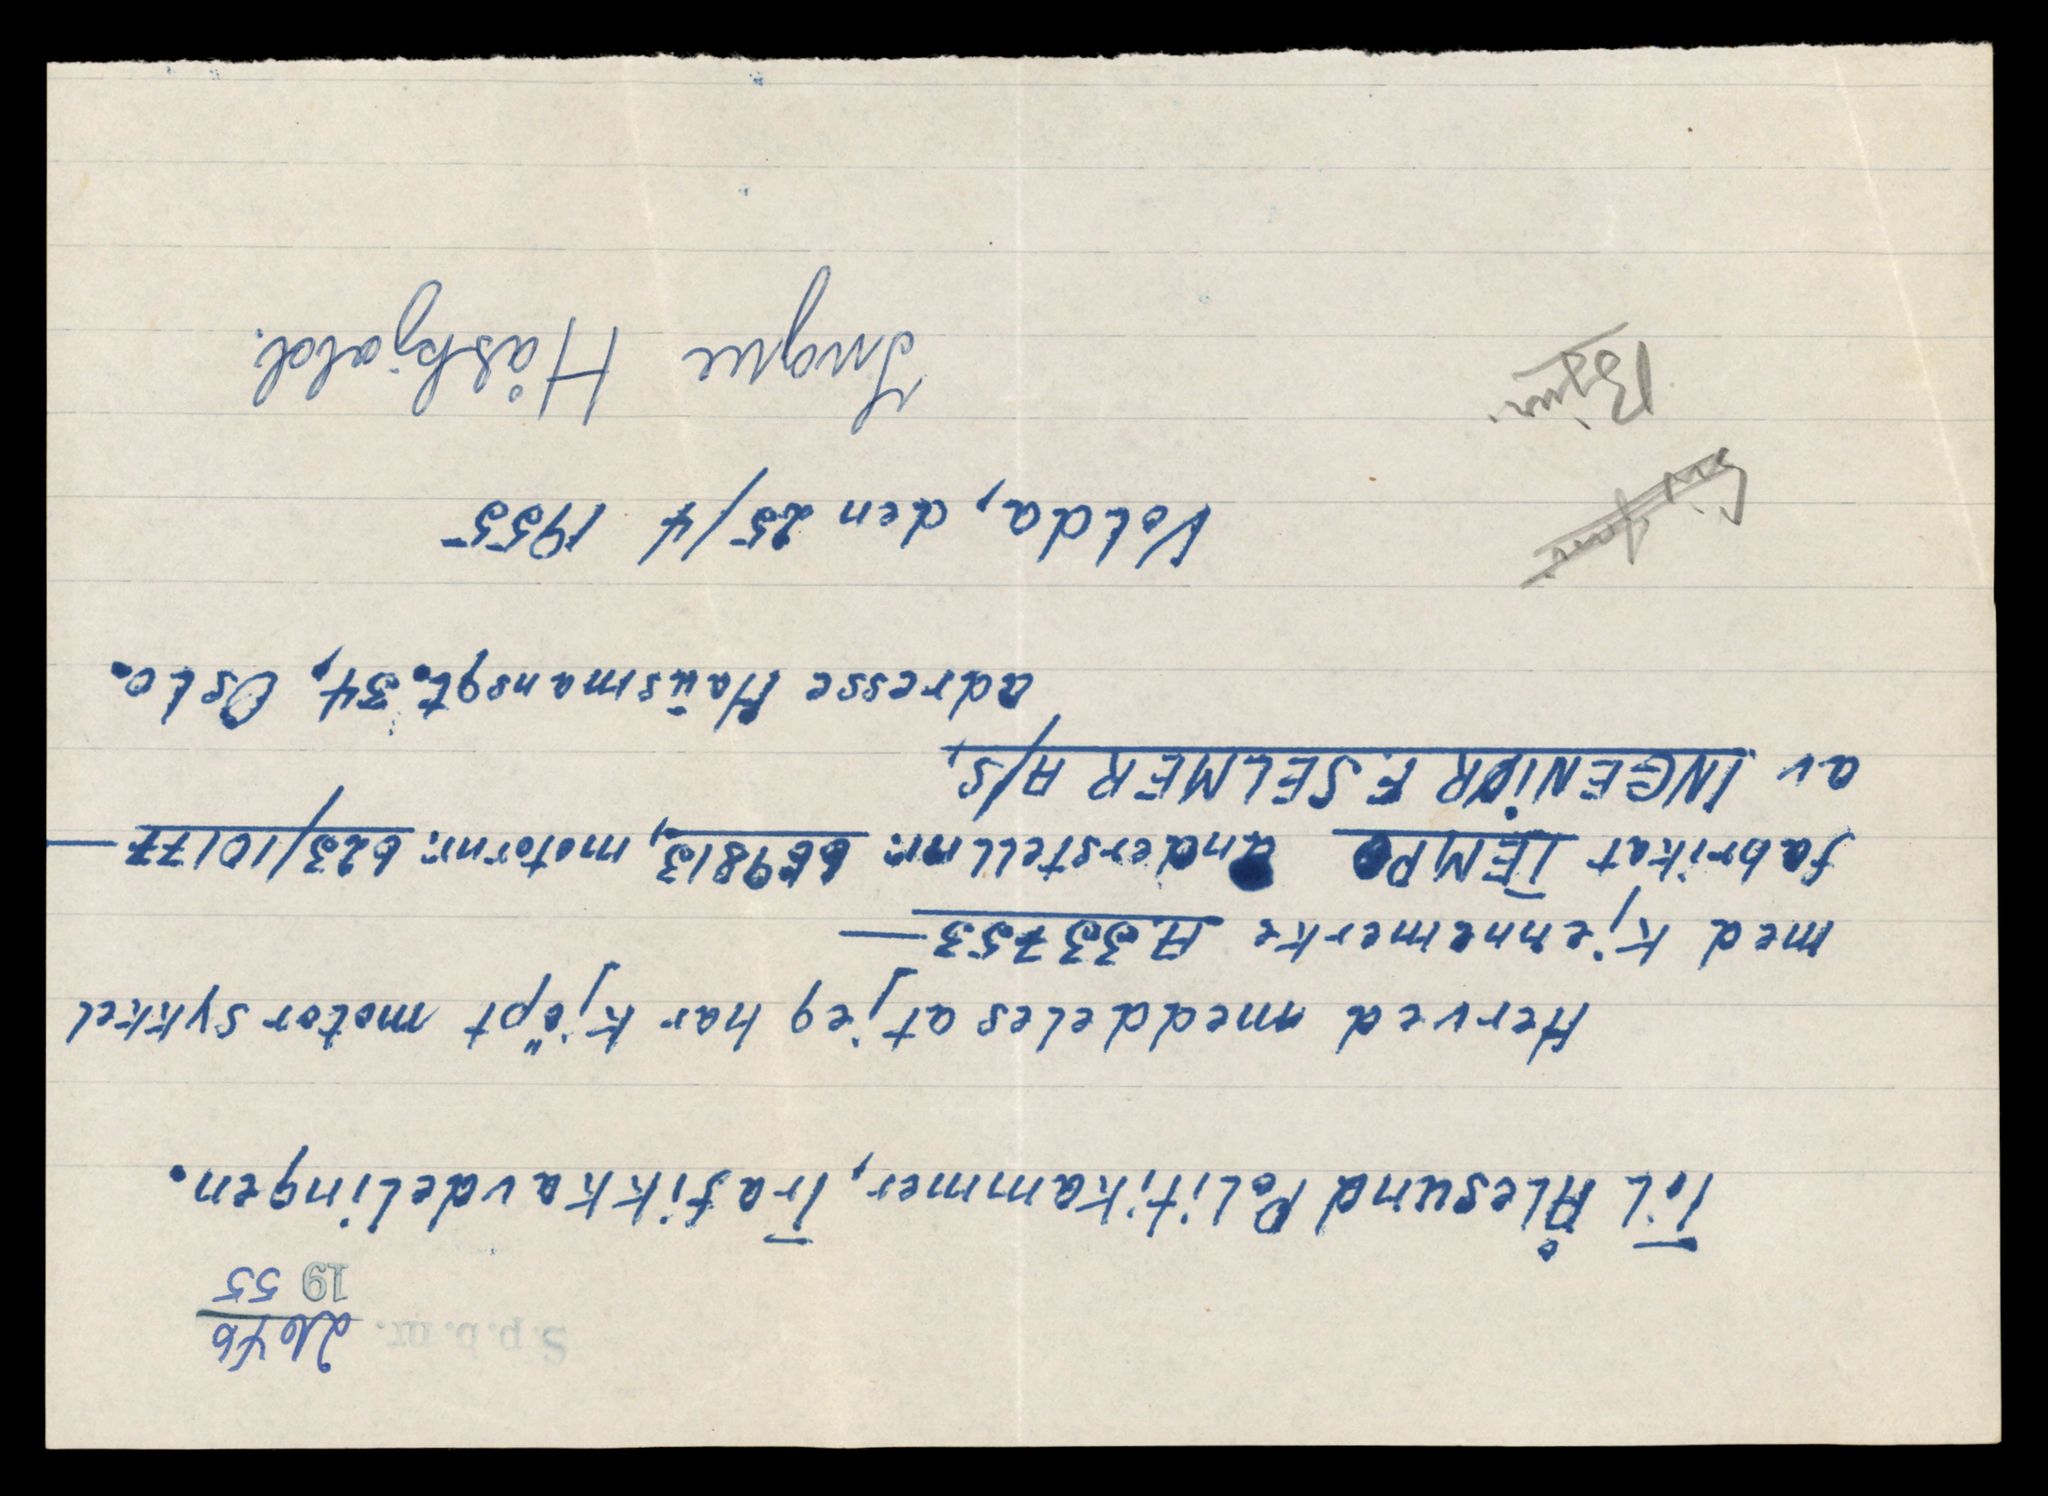 S.p.b. nr. 2646
19 55
Til Ålesund Politikammer, Trafikkavdelingen.
Herved meddeles at jeg har kjöpt motorsykkel
med kjennemerke A.33753 —
fabrikat TEMPO understellnr. 659813, motornr. 623/10177 —
av INGENIØR F. SELMER A/S,
adresse Hausmansgt. 34, Oslo.
Volda, den 25/4 1955
Ingvar Håskjold.